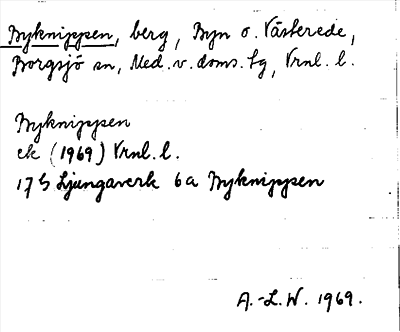 Byknippen, berg, Byn o. Västerede,
Borgsjö sn, Med. v. doms. tg, Vrnl. l.
Byknippen
ek (1969) Vrnl. l.
17G Ljungaverk 6a Byknippen
A.-L. W. 1969.